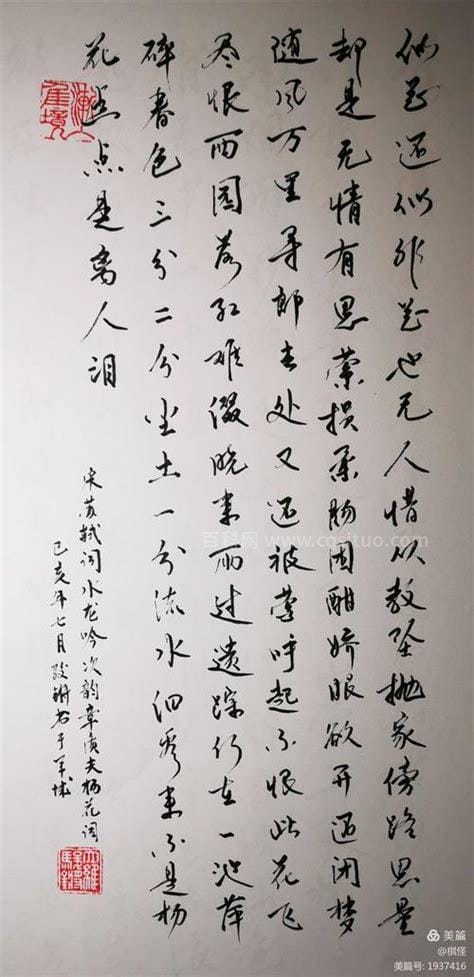 似花还似非花也无人惜从教坠抛家傍路思量
却是无情有思萦损柔肠困酣娇眼欲开还闭梦
随风万里寻郎去处又还被莺呼起不恨此花飞
尽恨西园落红难缀晓来雨过遗踪何在一池萍
碎春色三分二分尘土一分流水细看来不是杨
花点点是离人泪
宋苏轼词水龙吟次韵章质夫杨花词
己亥年七月书于羊城
百科网 www.cqsituo.com
美篇
@棋怪
美篇号: 1937416